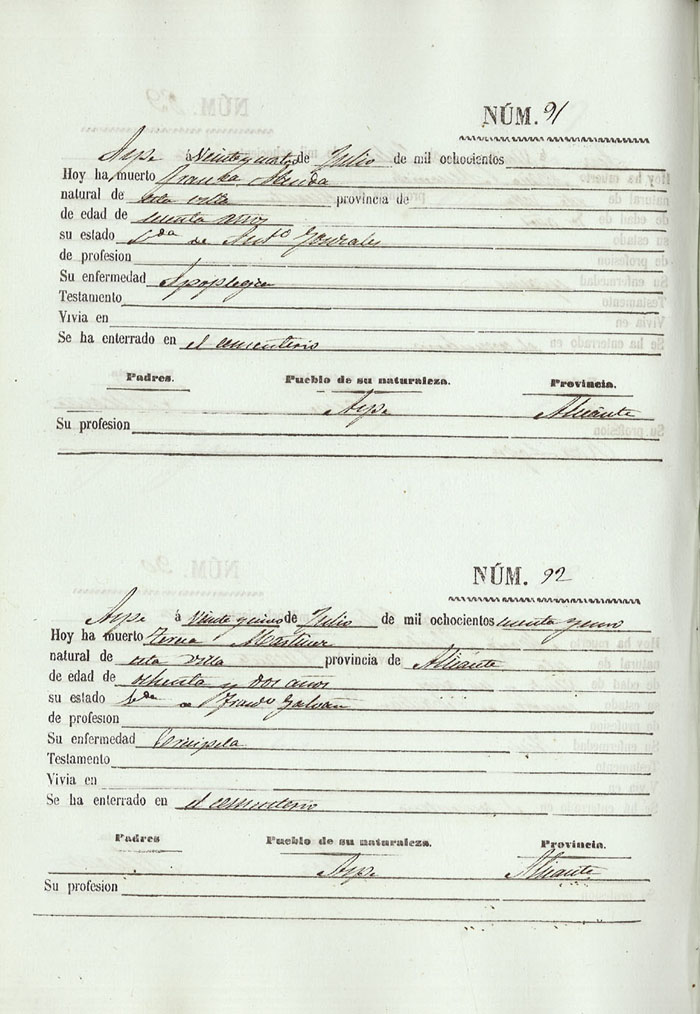 NÚM. 91
Aspe á Veintequatro de Julio de mil ochocientos
Hoy ha muerto
natural de esta villa provincia de
de edad de años
su estado Vda de Anto Gonzales
de profesion
Su enfermedad Apoplegica
Testamento
Vivia en
Se ha enterrado en el cementerio
Padres. Pueblo de su naturaleza. Provincia.
Aspe Alicante
Su profesion
NÚM. 92
Aspe á Veinte y cinco de Julio de mil ochocientos
Hoy ha muerto Teresa Martinez
natural de esta villa provincia de Alicante
de edad de ochenta y dos años
su estado Vda de Galvañ
de profesion
Su enfermedad
Testamento
Vivia en
Se ha enterrado en el cementerio
Padres Pueblo de su naturaleza. Provincia.
Aspe Alicante
Su profesion